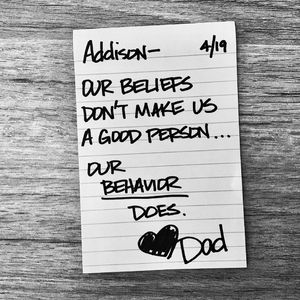 Addison- 4/19
OUR BELIEFS
DON'T MAKE US
A GOOD PERSON...
OUR
BEHAVIOR
DOES.
Dad